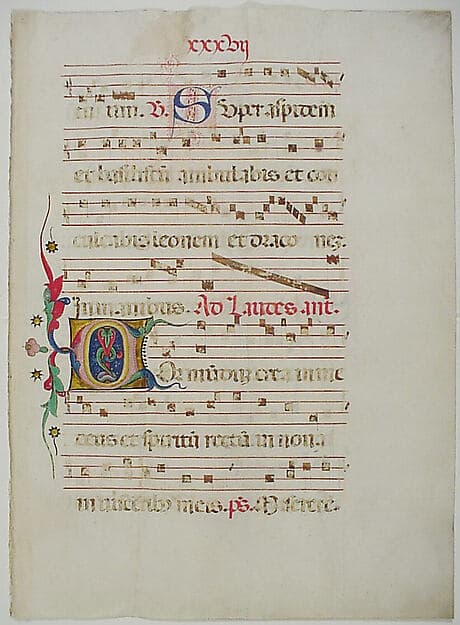 xxxvij
tu um. V. Super aspidem
et basiliscū ambulabis et con
culcabis leonem et draco nem.
In manibus. Ad Laudes ant.
Cor mūdū crea in me
deus et spiritū rectū in noua
in visceribus meis. ps. Miserere.